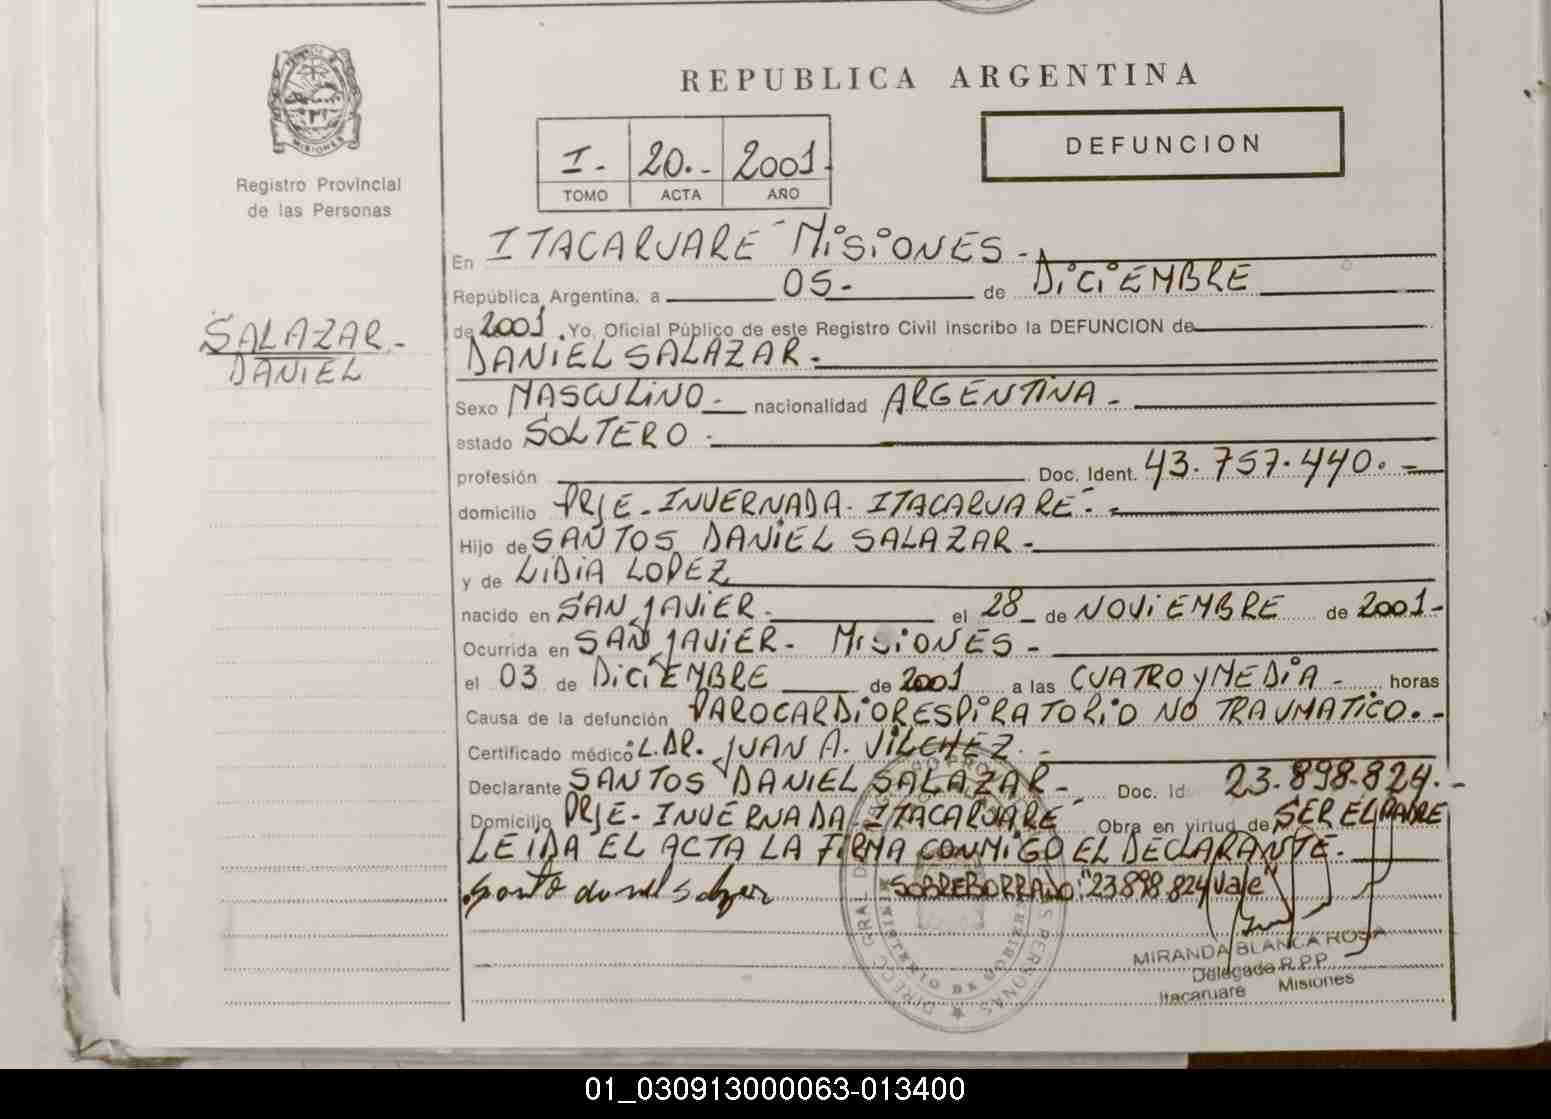 REPUBLICA ARGENTINA
MISIONES
Registro Provincial
de las Personas
I.- 20.- 2001.
TOMO ACTA AÑO
DEFUNCION
En ITACARUARE - MISIONES.-
República Argentina, a 05.- de DICIEMBRE
de 2001. Yo, Oficial Público de este Registro Civil inscribo la DEFUNCION de
SALAZAR.-
DANIEL
DANIEL SALAZAR.-
Sexo MASCULINO.- nacionalidad ARGENTINA.-
estado SOLTERO.-
profesión Doc. Ident. 43.757.440.-
domicilio PRJE-INVERNADA-ITACARUARE.-
Hijo de SANTOS DANIEL SALAZAR.-
y de LIDIA LOPEZ
nacido en SAN JAVIER.- el 28 de NOVIEMBRE de 2001-
Ocurrida en SAN JAVIER- MISIONES-
el 03 de DICIEMBRE de 2001 a las CUATRO Y MEDIA- horas
Causa de la defunción PAROCARDIORESPIRATORIO NO TRAUMATICO.-
Certificado médico: L.DR. JUAN A. VILCHEZ.-
Declarante SANTOS DANIEL SALAZAR- Doc. Id 23.898.824.-
Domicilio PRJE-INVERNADA ITACARUARE Obra en virtud de SER EL PADRE
LEIDA EL ACTA LA FIRMA CONMIGO EL DECLARANTE.-
SOBREBORRADO: "23.898.824 Vale"
MIRANDA BLANCA ROSA
Delegado R.P.P.
Itacaruare Misiones
01_030913000063-013400